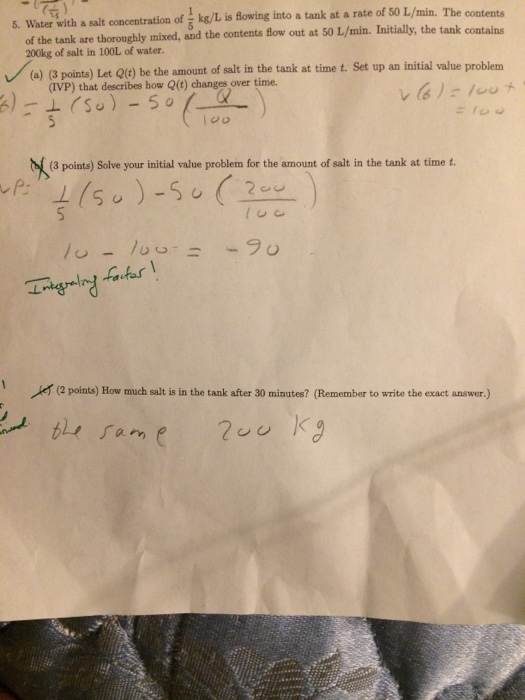 5. Water with a salt concentration of 1/5 kg/L is flowing into a tank at a rate of 50 L/min. The contents
of the tank are thoroughly mixed, and the contents flow out at 50 L/min. Initially, the tank contains
200kg of salt in 100L of water.
(a) (3 points) Let Q(t) be the amount of salt in the tank at time t. Set up an initial value problem
(IVP) that describes how Q(t) changes over time.
= 1/5 (50) - 50 (Q/100)
= 100
(3 points) Solve your initial value problem for the amount of salt in the tank at time t.
1/5 (50) - 50 (200/100)
10 - 100 = -90
Integrating factor!
(2 points) How much salt is in the tank after 30 minutes? (Remember to write the exact answer.)
the same 200 kg